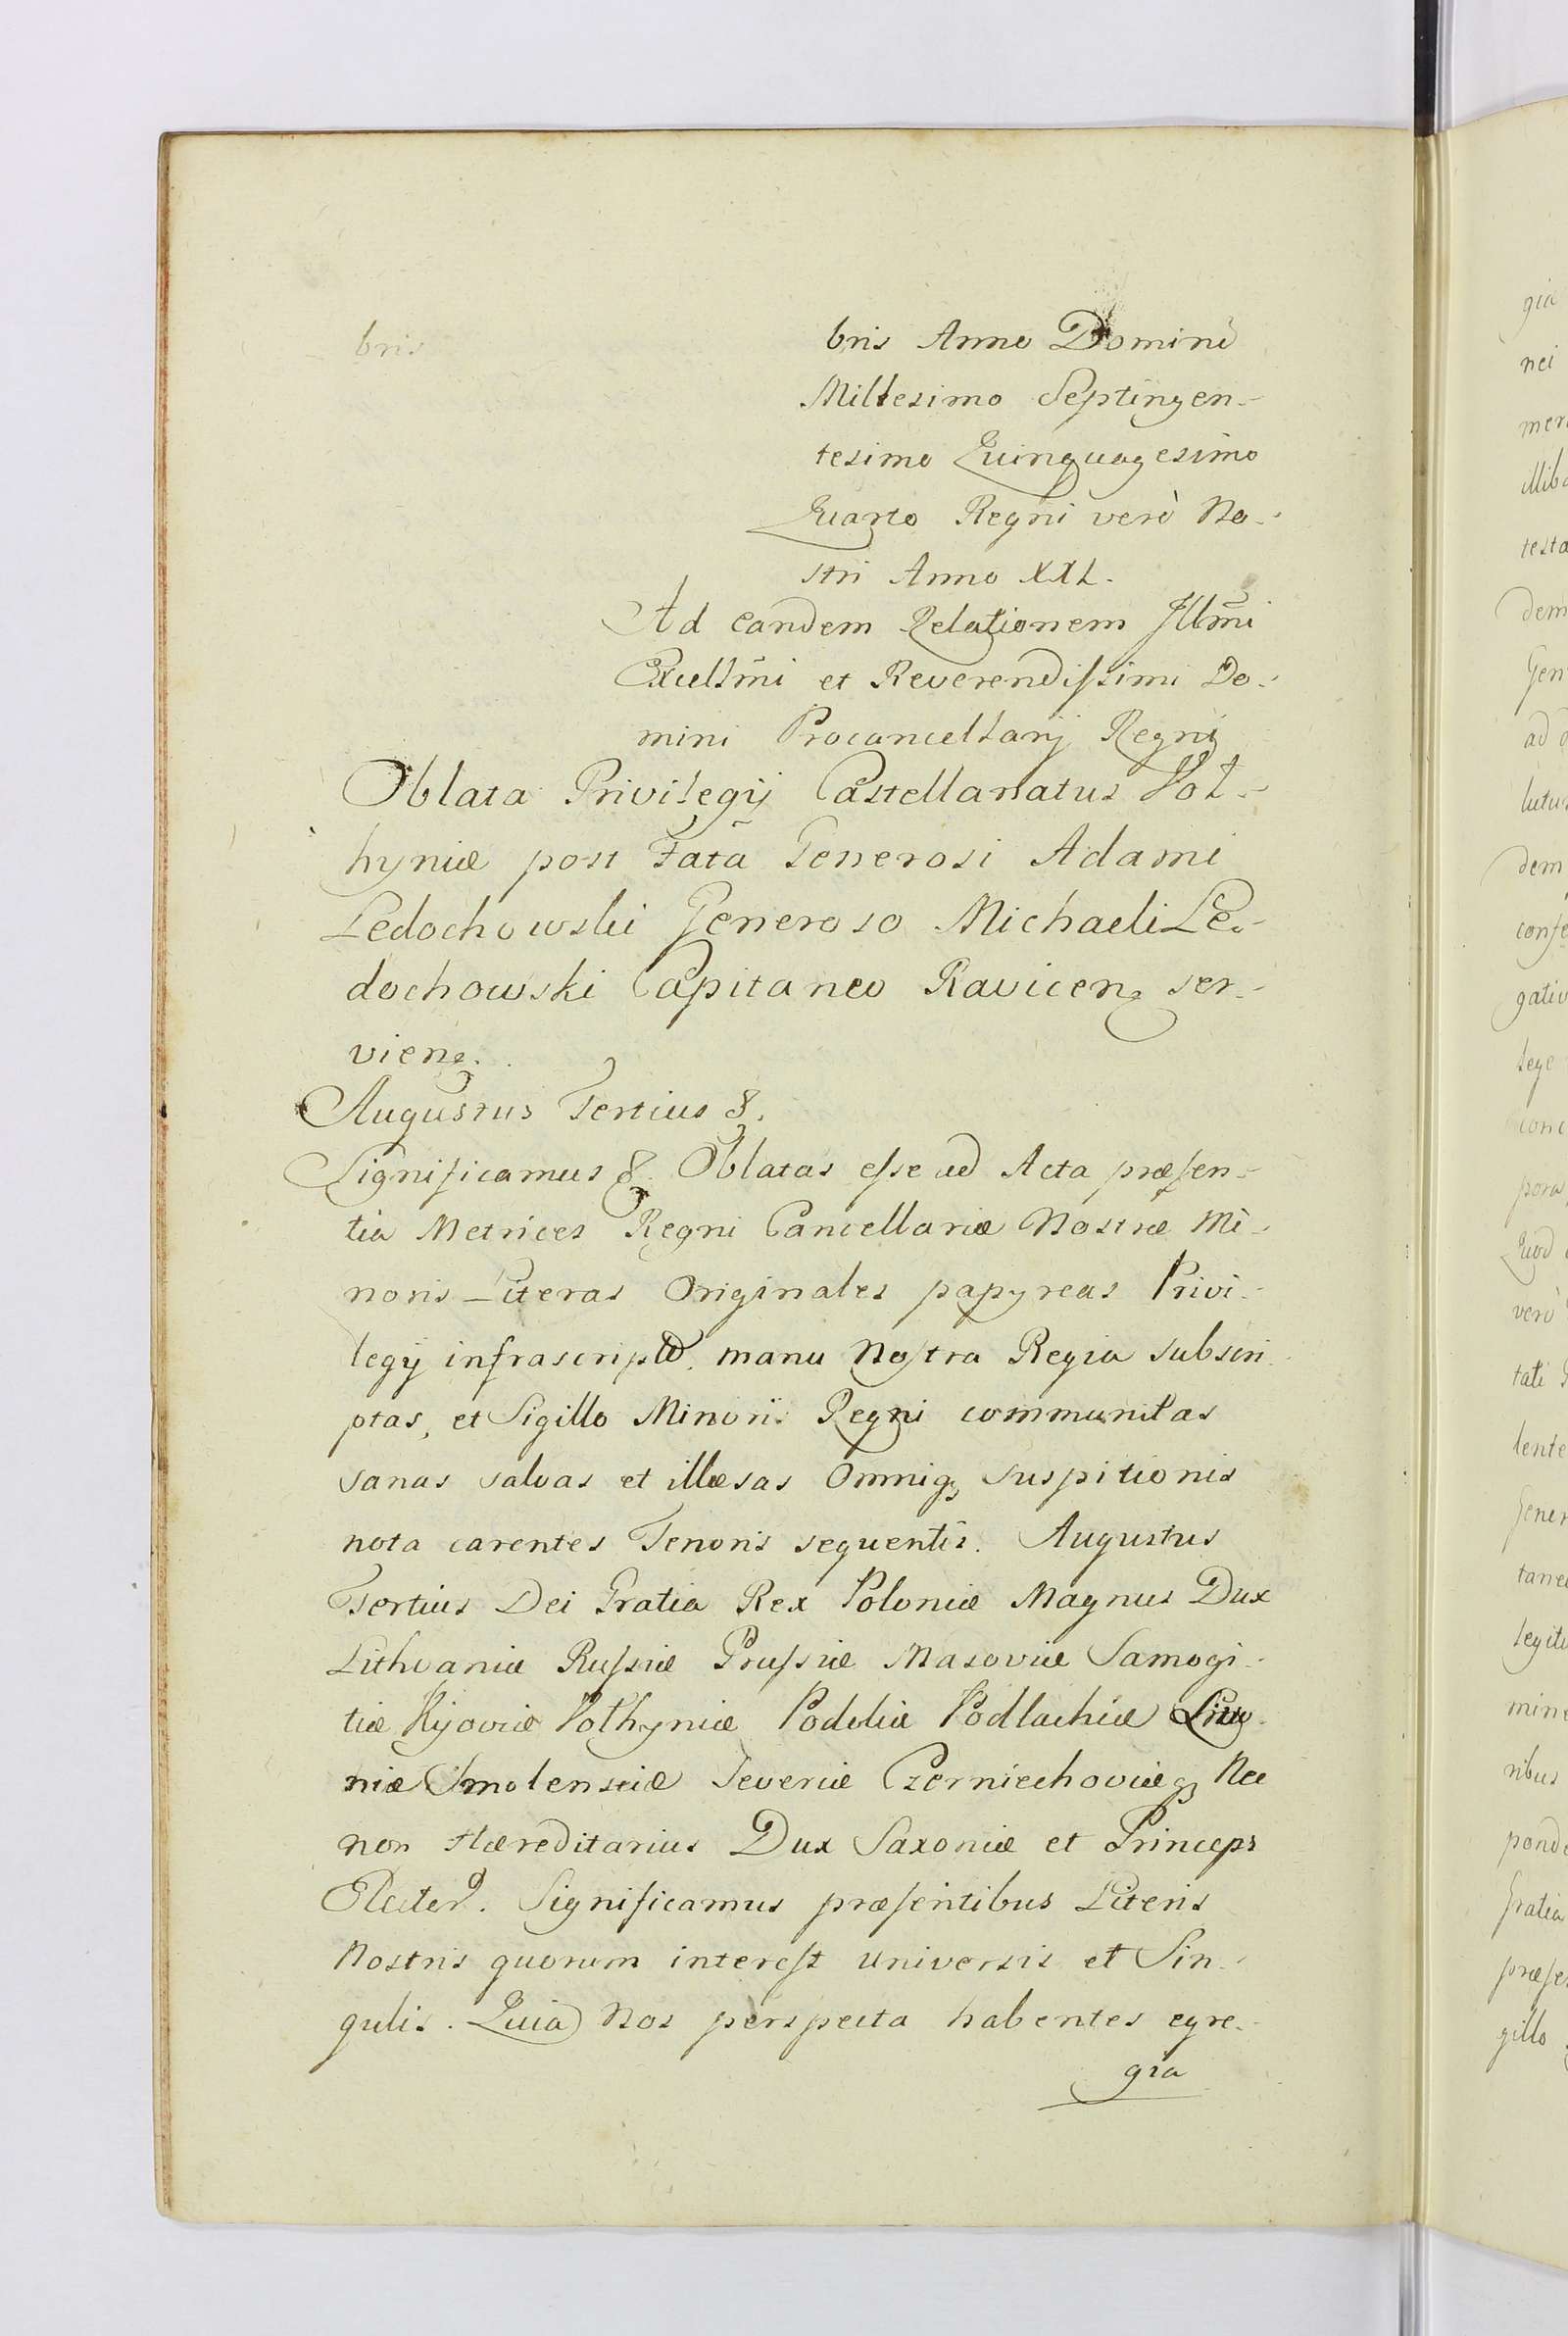 bris
bris Anno Domini
Millesimo Septingen-
tesimo Quinquagesimo
Quarto Regni verò No-
stri Anno XXI.
Ad eandem Relationem Jllm̃i
Excellm̃i et Reverendissimi Do-
mini Procancellarij Regni
Oblata Privilegij Castellanatus Vol-
hyniæ post Fata Generosi Adami
Ledochowski Generoso Michaeli Le-
dochowski Capitaneo Ravicen. ser-
vien.
Augustus Tertius &.
Significamus &. Oblatas esse ad Acta præsen-
tia Metrices Regni Cancellariæ Nostræ Mi-
noris Literas Originales papyreas Privi-
legij infrascripti. manu Nostra Regia subscri-
ptas, et Sigillo Minoris Regni communitas
sanas salvas et illæsas Omniq; suspitionis
nota carentes Tenoris sequentis. Augustus
Tertius Dei Gratia Rex Poloniæ Magnus Dux
Lithvaniæ Russiæ Prussiæ Masoviæ Samogi-
tiæ Kijoviæ Volhyniæ Podoliæ Podlachiæ Livo-
niæ Smolensciæ Severiæ Czerniechoviæq; Nec
non Hæreditarius Dux Saxoniæ et Princeps
Elector. Significamus præsentibus Literis
Nostris quorum interest universis et Sin-
gulis. Quia Nos perspecta habentes egre-
gia